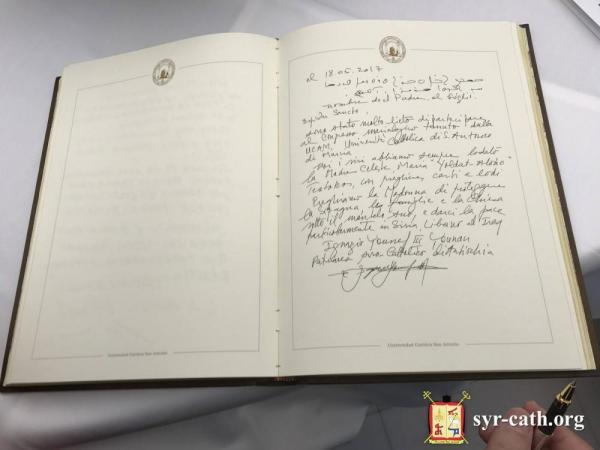 el 18.05.2017
nombre del Padre, el Figli.
Sp. Sancto.
sono stato molto lieto di partecipare
al Congresso mariologico tenuto dalla
UCAM, Università Cattolica di S. Antonio
di Murcia.
noi i siri abbiamo sempre lodato
la Madre Celeste, Maria "Yoldat Aloho"
Teotokos, con preghiere, canti e lodi
Preghiamo la Madonna di proteggere
la Spagna, le famiglie e la Chiesa
sotto il manto suo, e darci la pace
particolarmente in Siria, Libano ed Iraq
Ignazio Youssef III Younan
Patriarca siro cattolico di Antiochia
Universidad Católica San Antonio
Universidad Católica San Antonio
syr-cath.org